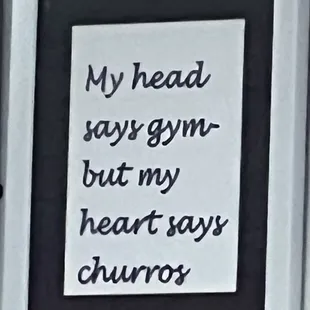 My head
says gym-
but my
heart says
churros